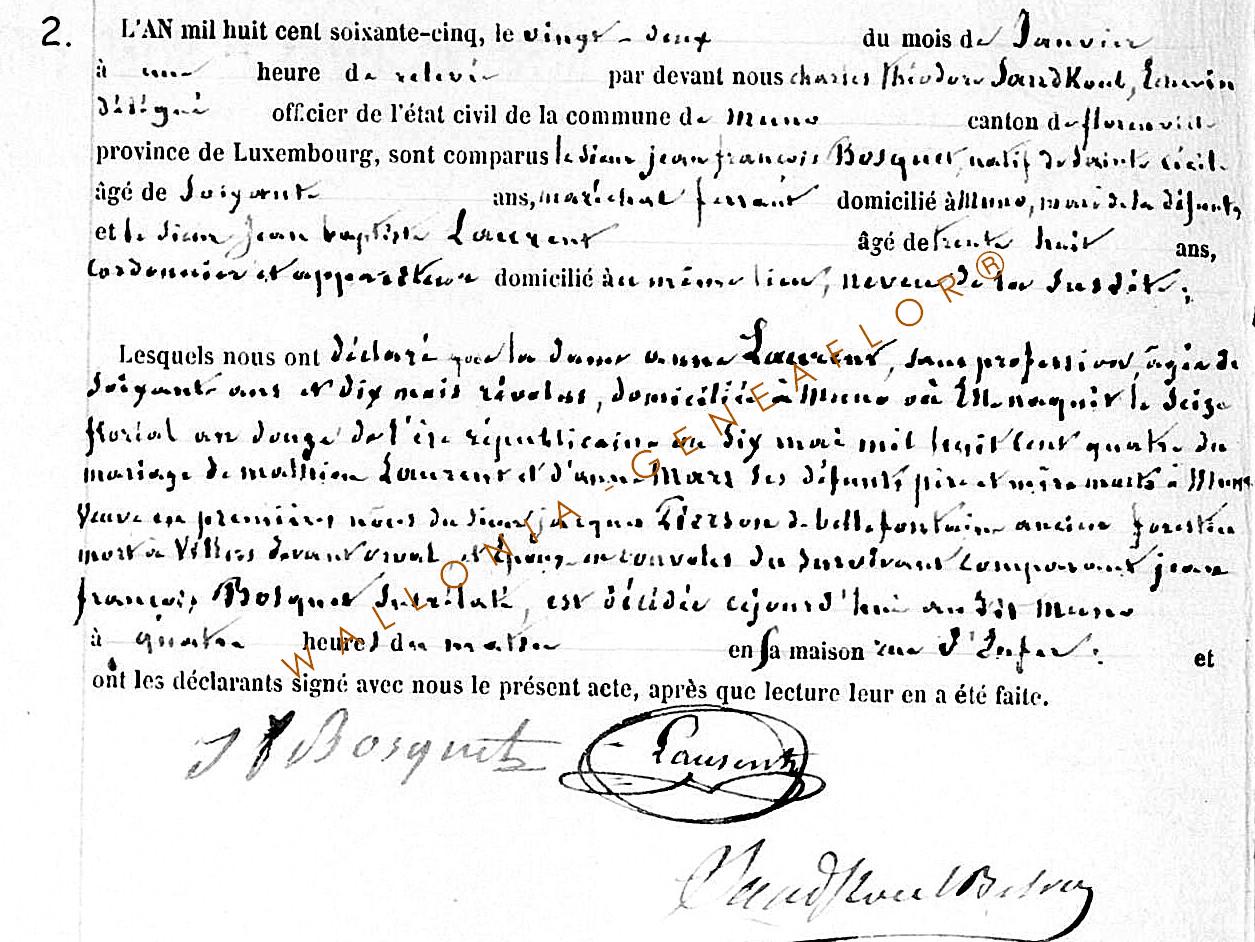 2. L'AN mil huit cent soixante-cinq, le vingt-deux du mois de Janvier
à une heure de relevée par devant nous charles théodore Sandkoul, Echevin
délégué officier de l'état civil de la commune de Muno canton de florenville
province de Luxembourg, sont comparus le sieur jean françois Bosquet, natif de Sainte Cécile
âgé de Soixante ans, maréchal ferrant domicilié à Muno, mari de la défunte,
et le sieur Jean baptiste Laurent âgé de trente huit ans,
Cordonnier et appariteur domicilié au même lieu, neveu de la Susdite;
Lesquels nous ont déclaré que la dame anne Laurent, sans profession, agée de
Soixante ans et dix mois révolus, domiciliée à Muno où Elle naquit le Seize
floréal an douze de l'ère républicaine au dix mai mil huit cent quatre du
mariage de mathieu Laurent et d'anne Mars ses défunts père et mère morts à Muno
Veuve en premières nôces du sieur jacques Pierson de bellefontaine ancien forestier
mort à Villers devant orval, et Epouse en convoles du Survivant Comparant jean
françois Bosquet Surrélaté, est décédée cejourd'hui au dit Muno
à quatre heures du matin en sa maison rue d'Enfer; et
ont les déclarants signé avec nous le présent acte, après que lecture leur en a été faite.
J f Bosquet Laurent
WALLONIA-GENEAFLOR®